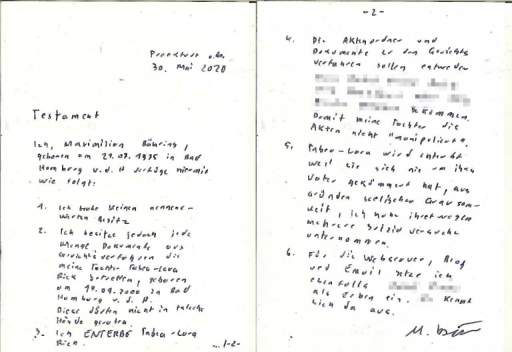 Frankfurt a.M.
30. Mai 2020
Testament
Ich, Maximilian Bähring,
geboren am 21.07.1975 in Bad
Homburg v.d.H verfüge hiermit
wie folgt:
1. Ich habe keinen nennens-
werten Besitz
2. Ich besitze jedoch jede
Menge Dokumente aus
Gerichtsverfahren die
meine Tochter
betreffen, geboren
am 14.09.2000 in Bad
Homburg v.d.H.
Diese dürfen nicht in falsche
Hände geraten.
3. Ich ENTERBE
...1-2-
-2-
4. Die Aktenordner und
Dokumente zu den Gerichts
verfahren sollen entweder
bekommen.
Damit meine Tochter die
Akten nicht "manipuliert".
5. wird enterbt
weil sie sich nie um ihren
Vater gekümmert hat, aus
gründen seelischer Grausam-
keit, ich habe ihretwegen
mehrere Suizidversuche
unternommen.
6. Für die Webserver, Blog
und Email setze ich
ebenfalls
als Erben ein. kennt
sich da aus.